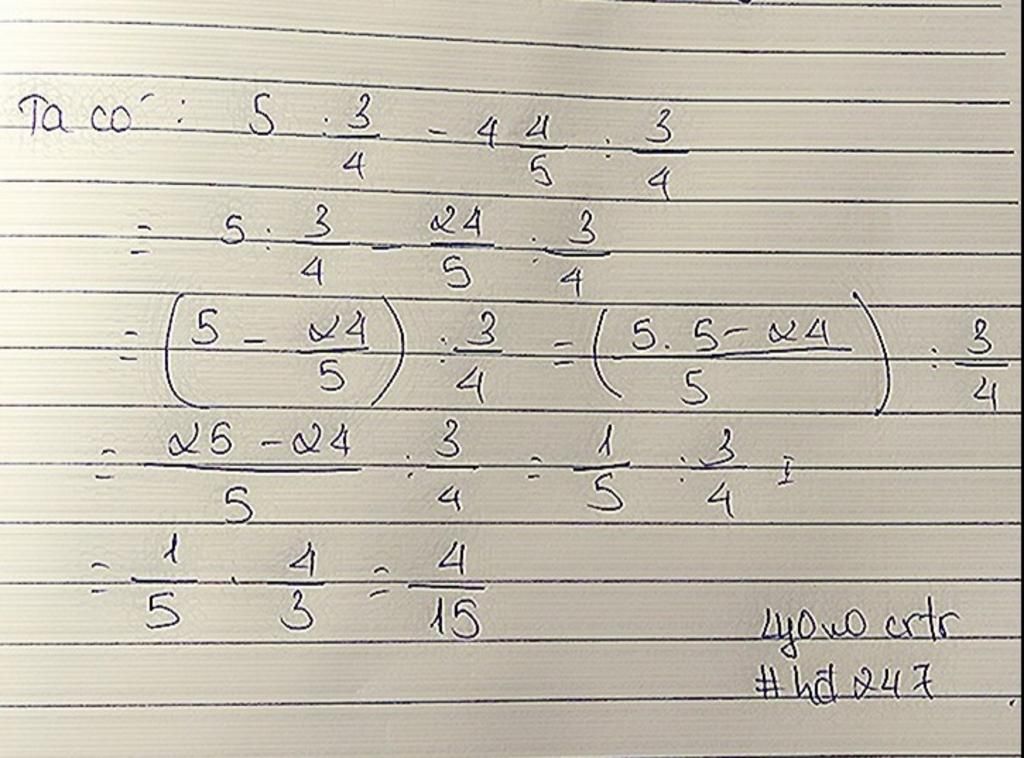 Ta có: 5 : 3/4 - 4 4/5 : 3/4
= 5 : 3/4 - 24/5 : 3/4
= (5 - 24/5) : 3/4 = (5.5-24/5) : 3/4
= 25-24/5 : 3/4 = 1/5 : 3/4
= 1/5 . 4/3 = 4/15
#hd247